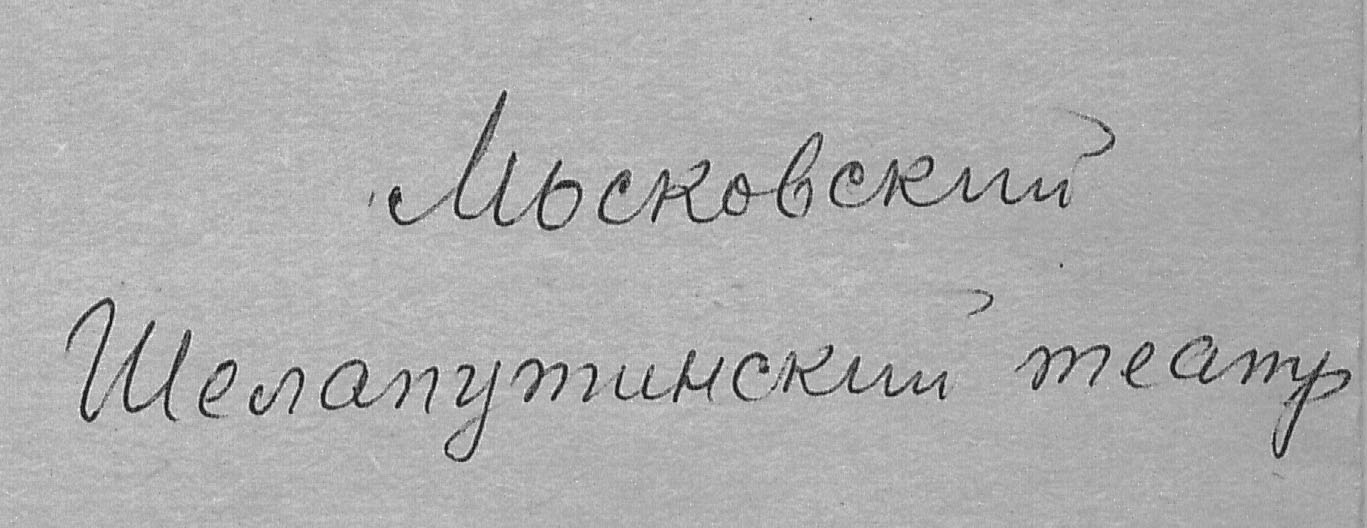 Мьсковский
Шелапутинский театр